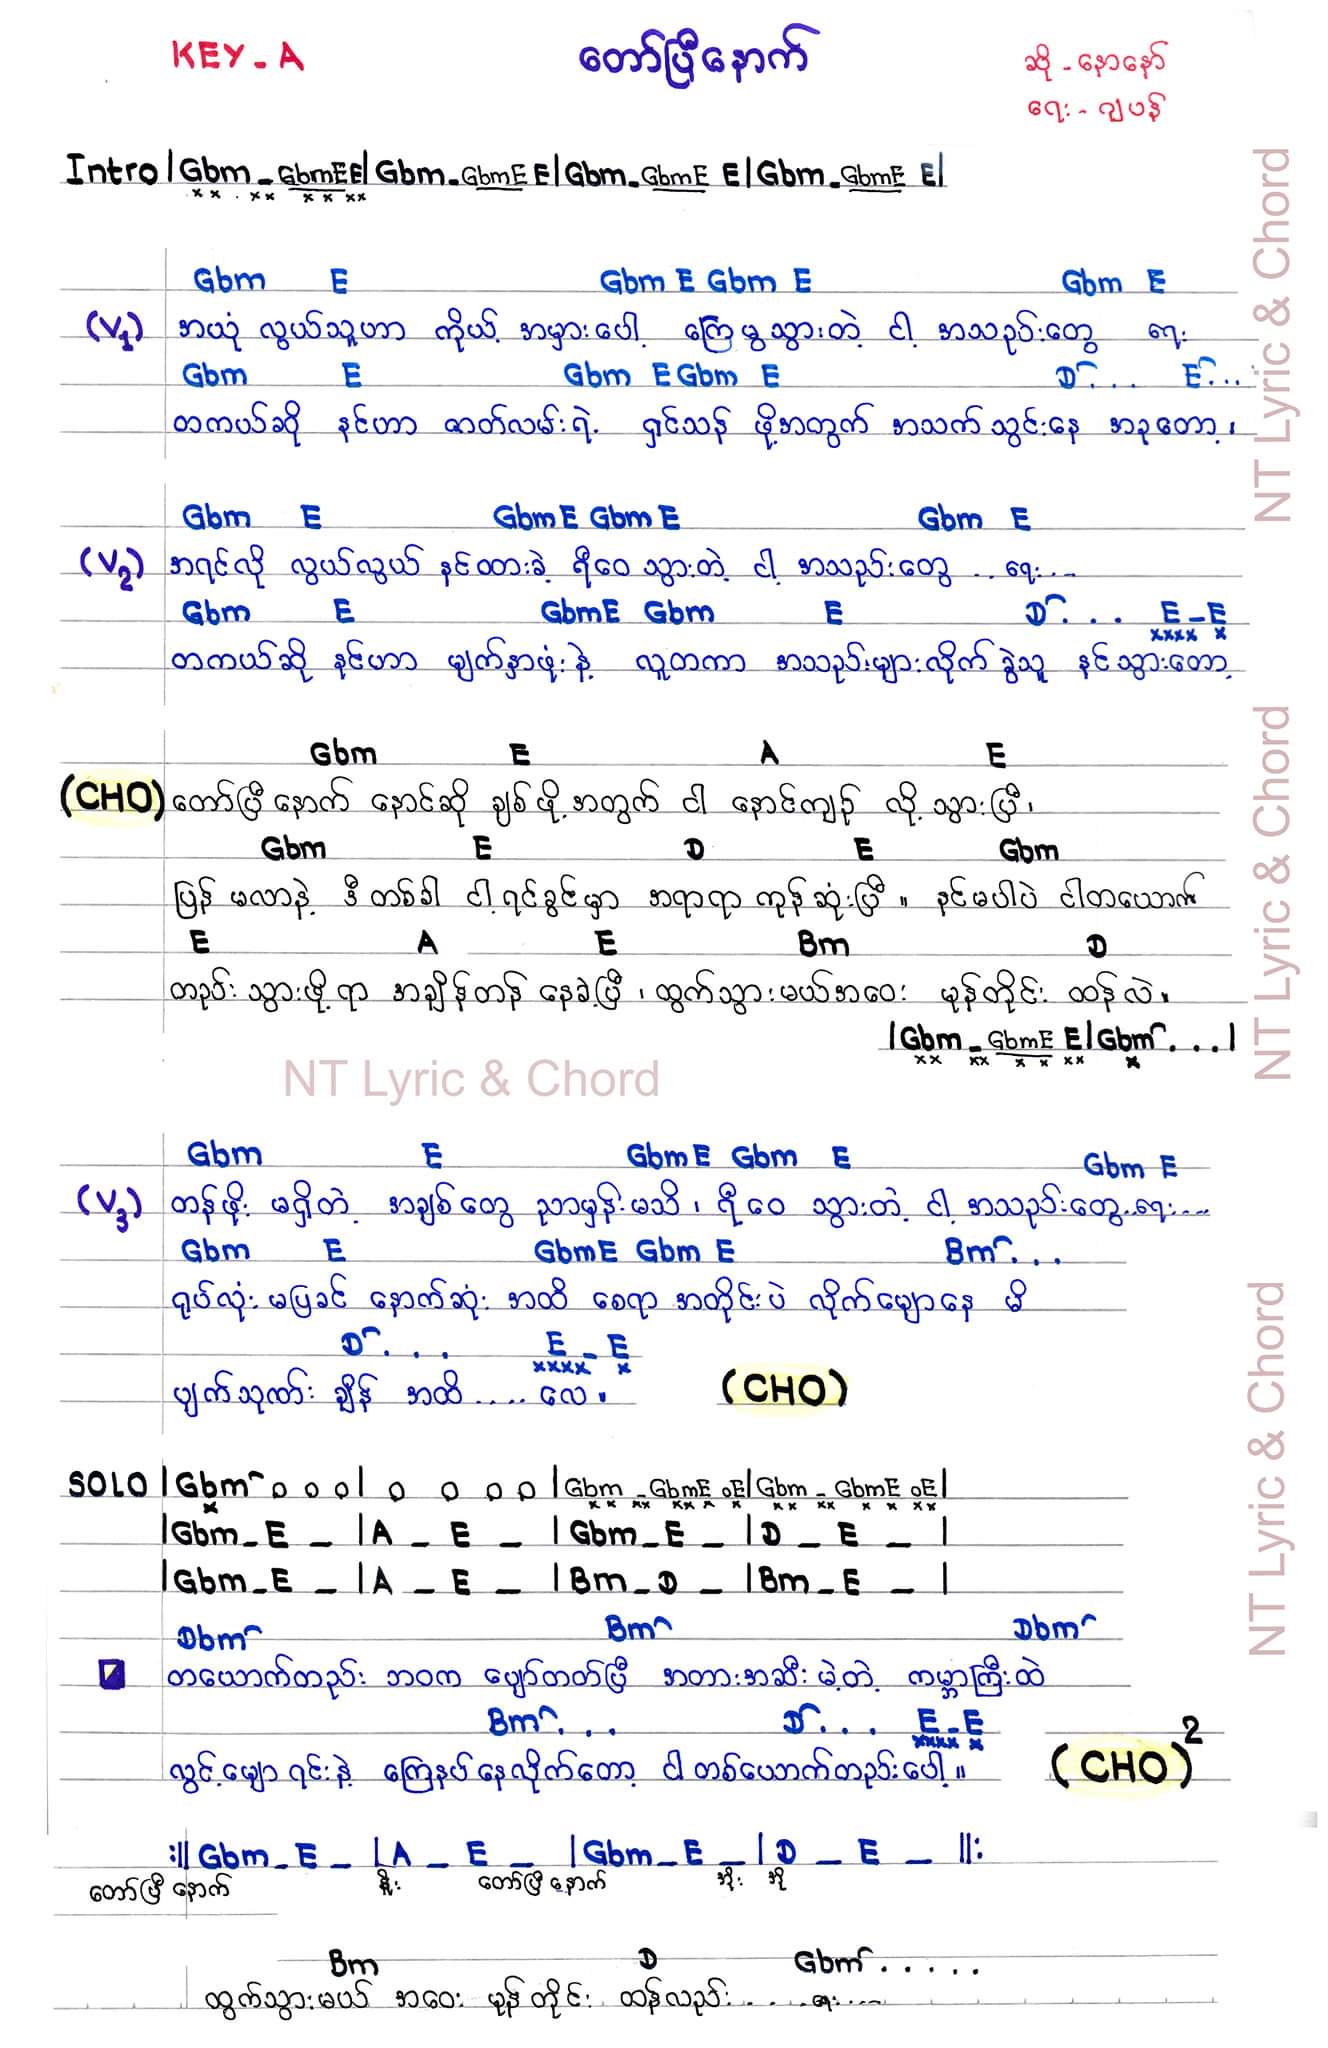 KEY - A
တော်ပြီနောက်
ဆို - နောနော်
ရေး - ဂျပန်
Intro |Gbm - GbmE E| Gbm - GbmE E| Gbm - GbmE E| Gbm - GbmE E|
Gbm E Gbm E Gbm E Gbm E
(V1) အယုံ လွယ်သူဟာ ကိုယ့် အမှားပေါ့ ကြေမွသွားတဲ့ ငါ့ အသည်းတွေ ရေး
Gbm E Gbm E Gbm E D... E...
တကယ်ဆို နင်ဟာ ဇာတ်လမ်းရဲ့ ရှင်သန် ဖို့အတွက် အသက်သွင်းနေ အခုတော့၊
Gbm E GbmE GbmE Gbm E
(V2) အရင်လို လွယ်လွယ် နင်ထားခဲ့ ရီဝေ သွားတဲ့ ငါ့ အသည်းတွေ .. ရေး...
Gbm E GbmE Gbm E D... E - E
တကယ်ဆို နင်ဟာ မျက်နှာဖုံးနဲ့ လူတကာ အသည်းများလိုက်ခွဲသူ နင်သွားတော့
Gbm E A E
(CHO) တော်ပြီနောက် နောင်ဆို ချစ်ဖို့အတွက် ငါ နောင်ကျဉ် လို့ သွားပြီ၊
Gbm E D E Gbm
ပြန် မလာနဲ့ ဒီ တစ်ခါ ငါ့ရင်ခွင်မှာ အရာရာ ကုန်ဆုံးပြီ ။ နင်မပါပဲ ငါတယောက်
E A E Bm D
တည်း သွားဖို့ရာ အချိန်တန် နေခဲ့ပြီ ၊ ထွက်သွားမယ်အဝေး မုန်တိုင်း ထန်လဲ ။
|Gbm - GbmE E|Gbm...|
NT Lyric & Chord
Gbm E GbmE Gbm E Gbm E
(V3) တန်ဖိုး မရှိတဲ့ အချစ်တွေ ညာမှန်းမသိ ၊ ရီဝေ သွားတဲ့ ငါ့ အသည်းတွေ..ရေး....
Gbm E GbmE Gbm E Bm...
ရုပ်လုံး မပြခင် နောက်ဆုံး အထိ စေရာ အတိုင်းပဲ လိုက်မျောနေ မိ
D... E - E
မျက်သုဏ်း ချိန် အထိ ..... လေ ။ (CHO)
SOLO |Gbm o o o| o o o o |Gbm - GbmE oE|Gbm - GbmE oE|
|Gbm - E - |A - E - |Gbm - E - |D - E - |
|Gbm - E - |A - E - |Bm - D - |Bm - E - |
Dbm Bm Dbm
တယောက်တည်း ဘဝက ပျော်တတ်ပြီ အတားအဆီး မဲ့တဲ့ ကမ္ဘာကြီးထဲ
Bm... D... E - E
လွင့်မျောရင်းနဲ့ ကြေနပ်နေလိုက်တော့ ငါ တစ်ယောက်တည်းပေါ့ ။ (CHO)2
:|| Gbm - E - |A - E - |Gbm - E - |D - E - ||:
တော်ပြီနောက် တော်ပြီနောက် အိုး အို
Bm D Gbm.....
ထွက်သွားမယ် အဝေး မုန်တိုင်း ထန်လည်း .... ရေး....
NT Lyric & Chord
NT Lyric & Chord
NT Lyric & Chord